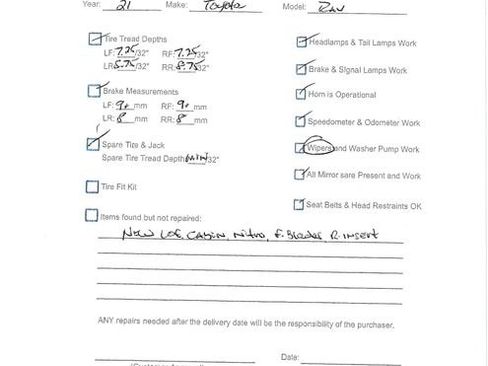 Year: 21 Make: Toyota Model: RAV
Tire Tread Depths
LF: 7.25/32" RF: 7.25/32"
LR: 8.75/32" RR: 8.75/32"
Brake Measurements
LF: 9+ mm RF: 9+ mm
LR: 8 mm RR: 8 mm
Spare Tire & Jack
Spare Tire Tread Depth MIN/32"
Tire Fit Kit
Items found but not repaired:
Headlamps & Tail Lamps Work
Brake & Signal Lamps Work
Horn is Operational
Speedometer & Odometer Work
Wipers and Washer Pump Work
All Mirror sare Present and Work
Seat Belts & Head Restraints OK
New LOF, Cabin, Nitro, F. Blades, R. insert
ANY repairs needed after the delivery date will be the responsibility of the purchaser.
Date: